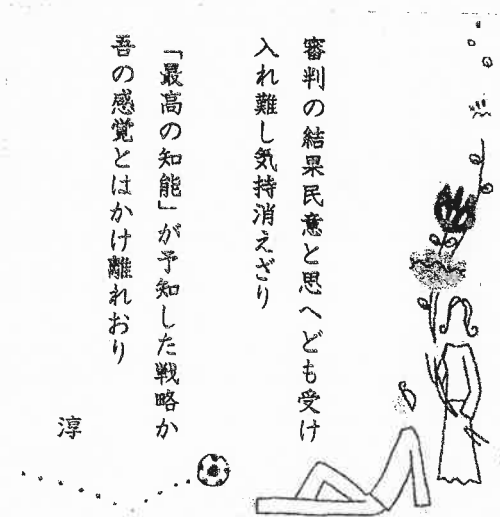 審判の結果民意と思へども受け
入れ難し気持消えざり
「最高の知能」が予知した戦略か
吾の感覚とはかけ離れおり
淳